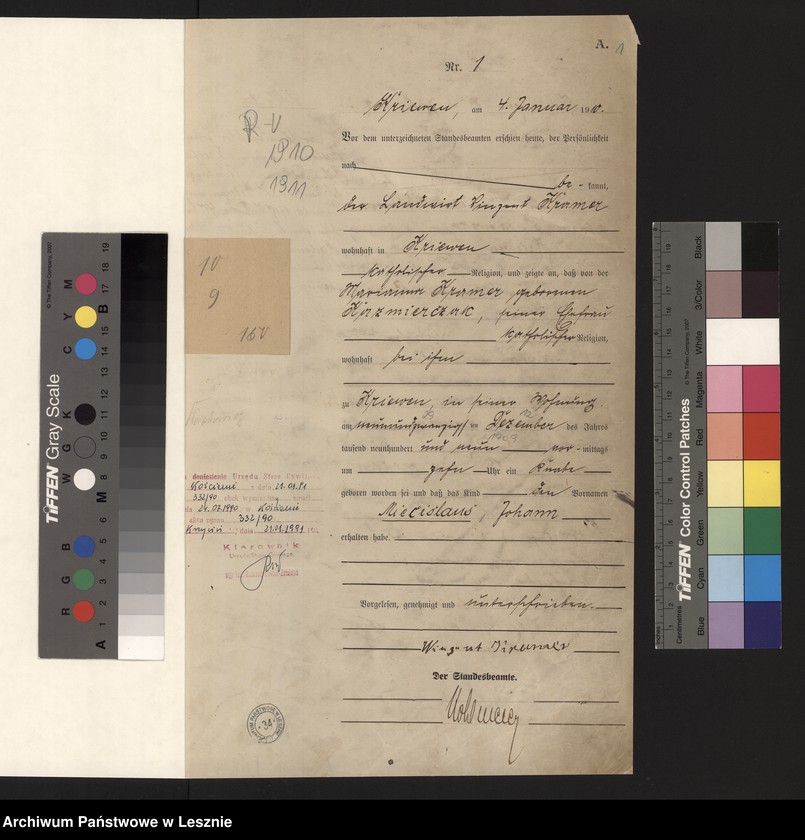 A. 1
Nr. 1
Kriewen, am 4. Januar 1910.
Vor dem unterzeichneten Standesbeamten erschien heute, der Persönlichkeit
nach
be- kannt,
der Landwirt Vinzent Kramer
wohnhaft in Kriewen
katholischer Religion, und zeigte an, daß von der
Marianna Kramer geborenen
Kazmierczak, seiner Ehefrau
katholischer Religion,
wohnhaft bei ihm
zu Kriewen, in seiner Wohnung
am neunundzwanzigsten Dezember des Jahres
29 12 1909
tausend neunhundert und neun vor-mittags
um zehn Uhr ein Knabe
geboren worden sei und daß das Kind den Vornamen
Miecislaus, Johann
erhalten habe.
Vorgelesen, genehmigt und unterschrieben.
Der Standesbeamte.
R-V
1910
1911
10
9
doniesienie Urzędu Stanu
Kościanie z dnia
332/90
24.07.1990 Kościanie
aktu zgonu 332/90
Krzywiń dnia 21.01.1991
Kierownik
34
© The Tiffen Company, 2007
TIFFEN Gray Scale
R G B W G K C Y M
A 1 2 3 4 5 6 M 8 9 10 11 12 13 14 15 B 17 18 19
TIFFEN Color Control Patches
© The Tiffen Company, 2007
Inches
Centimetres
Blue Cyan Green Yellow Red Magenta White 3/Color Black
Archiwum Państwowe w Lesznie